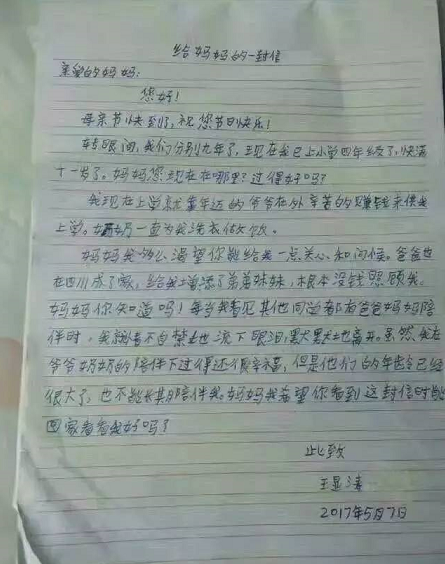 给妈妈的一封信
亲爱的妈妈:
您好!
母亲节快到了,祝您节日快乐!
转眼间,我们分别九年了,现在我已上小学四年级了,快满
十一岁了。妈妈您现在在哪里?过得好吗?
我现在上学就靠年迈的爷爷在外辛苦的赚钱来供我
上学。奶奶一直为我洗衣做饭。
妈妈我多么渴望你能给我一点关心和问候。爸爸也
在四川成了家,给我增添了弟弟妹妹,根本没钱照顾我。
妈妈你知道吗!每当我看见其他同学都有爸爸妈妈陪
伴时,我就会不自禁地流下眼泪,默默地离开。虽然我在
爷爷奶奶的陪伴下过得还很幸福,但是他们的年龄已经
很大了,也不能长期陪伴我。妈妈我希望你看到这封信时能
回家看看我好吗?
此致
王显
2017年5月7日